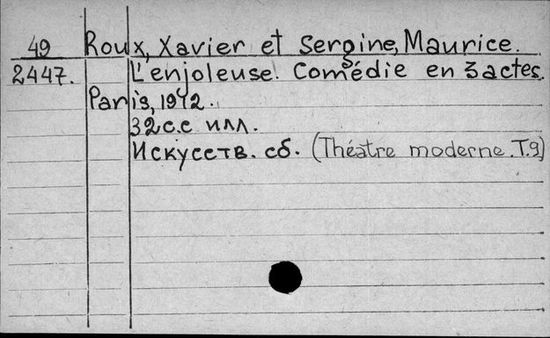 49 Roux, Xavier et Sergine, Maurice.
2447. L'enjoleuse. Comédie en 3 actes.
Paris, 1912.
32 с.с илл.
Искусств. сб. (Théâtre moderne. T.9)